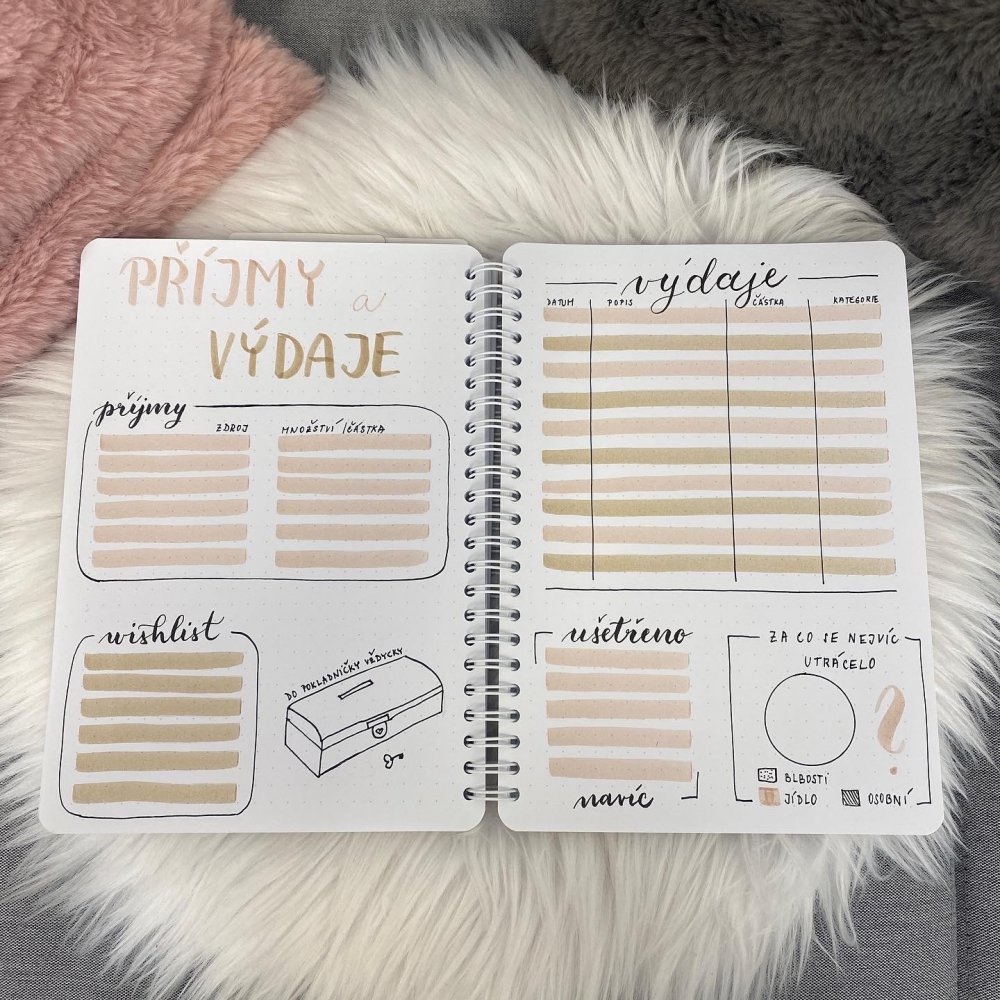 PŘÍJMY a
VÝDAJE
příjmy
ZDROJ MNOŽSTVÍ/ČÁSTKA
wishlist
DO POKLADNIČKY VŽDYCKY
výdaje
DATUM POPIS ČÁSTKA KATEGORIE
ušetřeno
navíc
ZA CO SE NEJVÍC
UTRÁCELO
?
BLBOSTI
JÍDLO OSOBNÍ